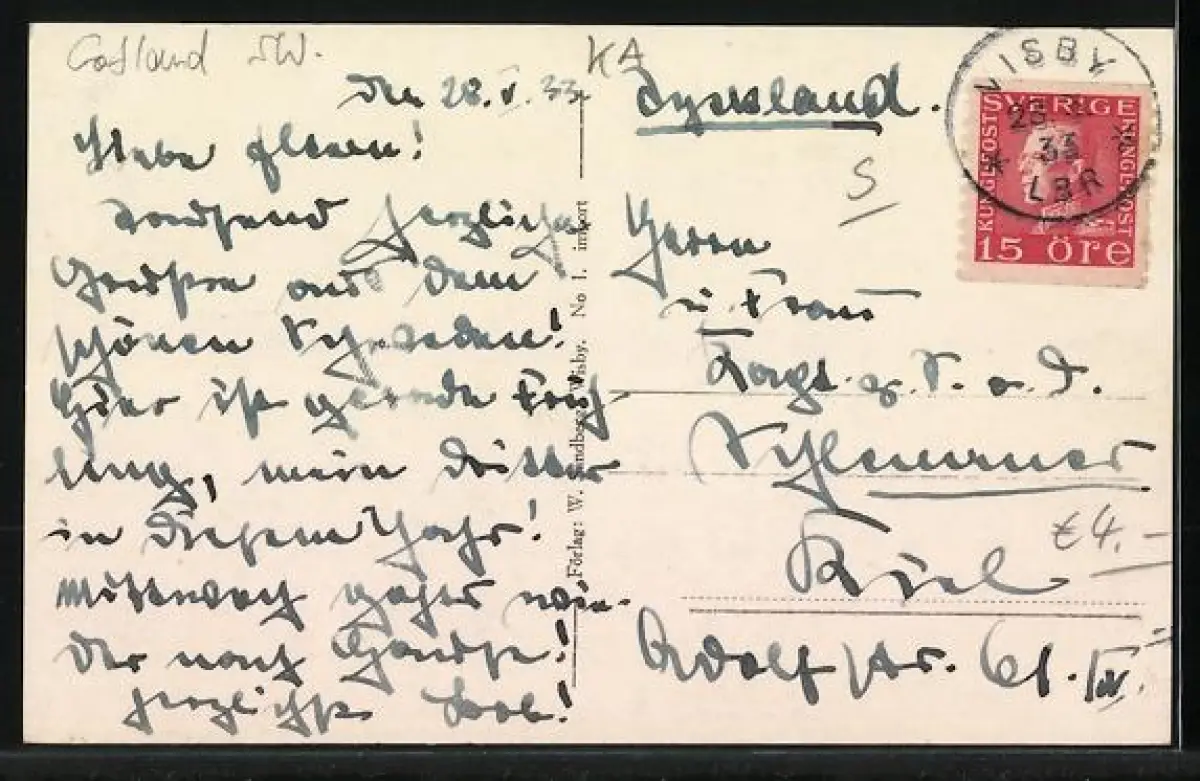 Gotland SW.
KA
den 28. V. 33.
Liebe Eltern!
Tausend herzliche
Grüsse aus dem
schönen Schweden!
Hier ist gerade Früh-
ling, mein dritter
in diesem Jahr!
Mittwoch gehts wie-
der nach Hause!
Herzlichst
Förlag: W. Sandberg, Wisby. No 1. import
Tyskland.
S
Herrn
u. Frau
Kapt. z. S. a. D.
Kiel
€4.-
Adolfstr. 61. IV.
VISBY
33
LBR
SVERIGE
KUNGL·POST
KUNGL·POST
15 ÖRE